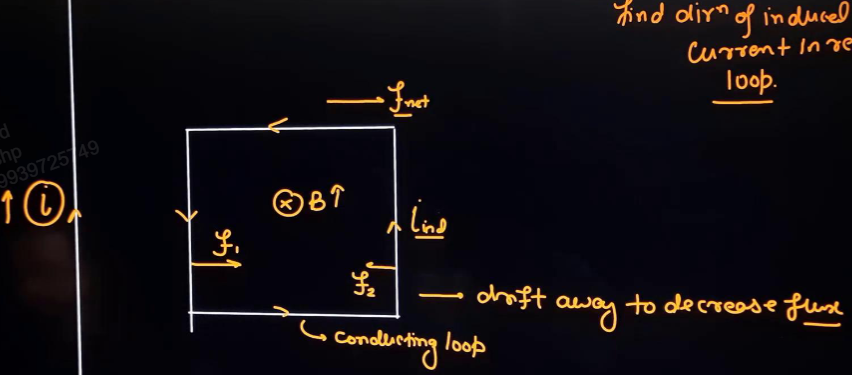 find dirⁿ of induced
current in re
loop.
fnet
9939725749
⊗ B↑
↑ i
iind
f₁
f₂
→ drift away to decrease flux
conducting loop